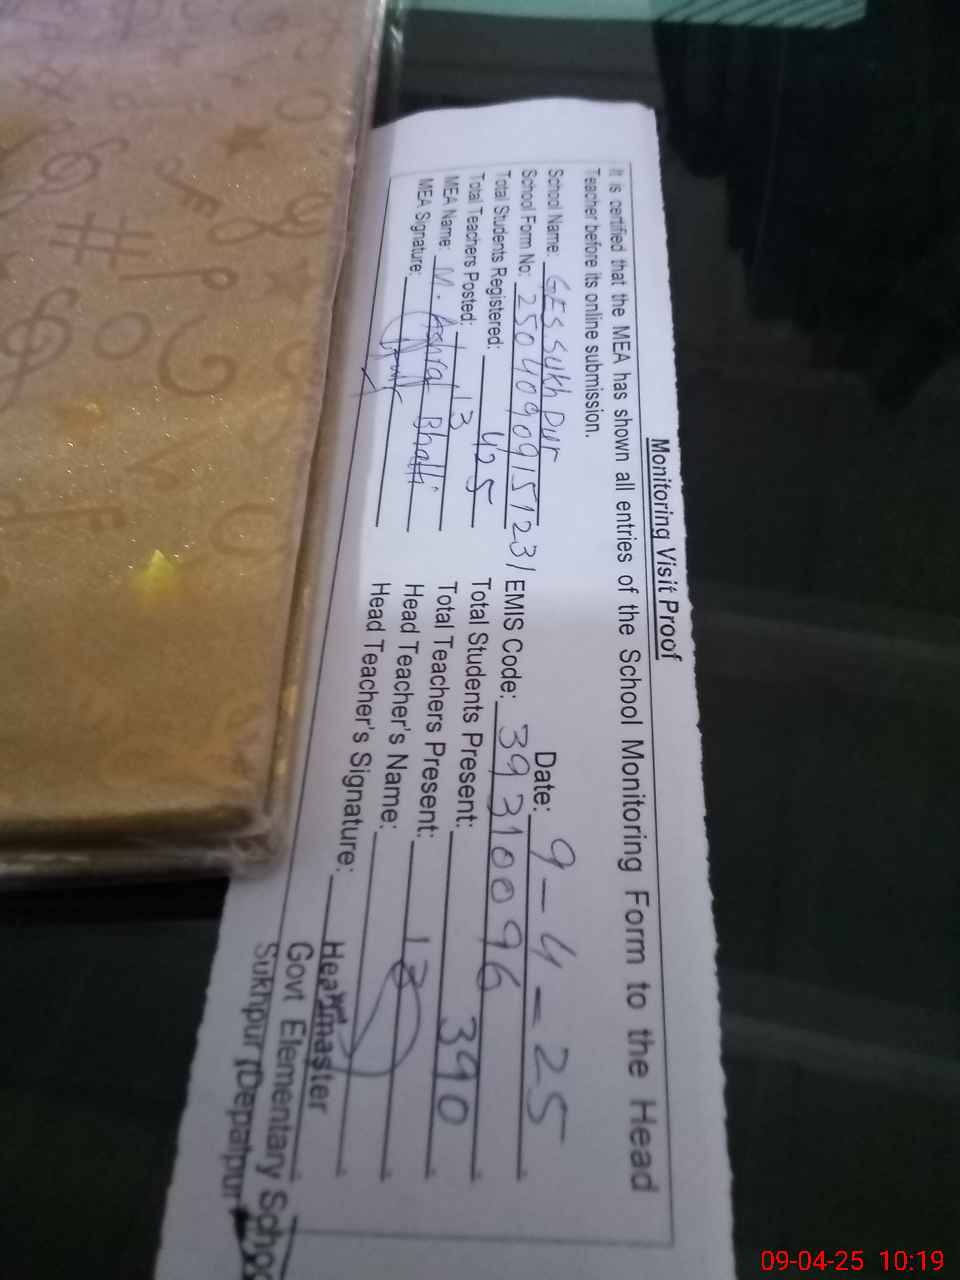 Monitoring Visit Proof
It is certified that the MEA has shown all entries of the School Monitoring Form to the Head
Teacher before its online submission.
School Name: GES Sukhpur Date: 9-4-25
School Form No: 2504090915123/ EMIS Code: 39310096
Total Students Registered: 425 Total Students Present: 390
Total Teachers Posted: 13 Total Teachers Present: 13
MEA Name: M. Ashraf Bhatti Head Teacher's Name:
MEA Signature: Head Teacher's Signature:
Headmaster
Govt Elementary School
Sukhpur (Depalpur)
09-04-25 10:19